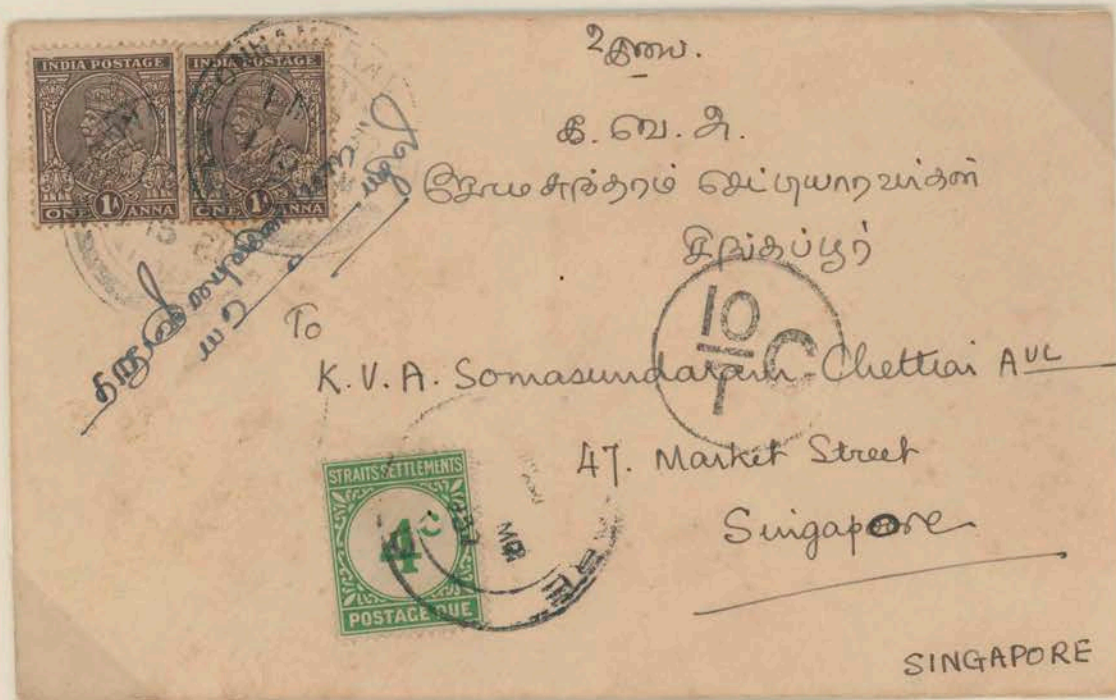 INDIA POSTAGE
1A
ONE ANNA
INDIA POSTAGE
1A
ONE ANNA
உ
க. வெ. அ.
சோமசுந்தரம் செட்டியாரவர்கள்
சிங்கப்பூர்
10
T
C
To
K. V. A. Somasundaram Chettiar AVL
47. Market Street
Singapore
STRAITS SETTLEMENTS
4c
POSTAGE DUE
SINGAPORE